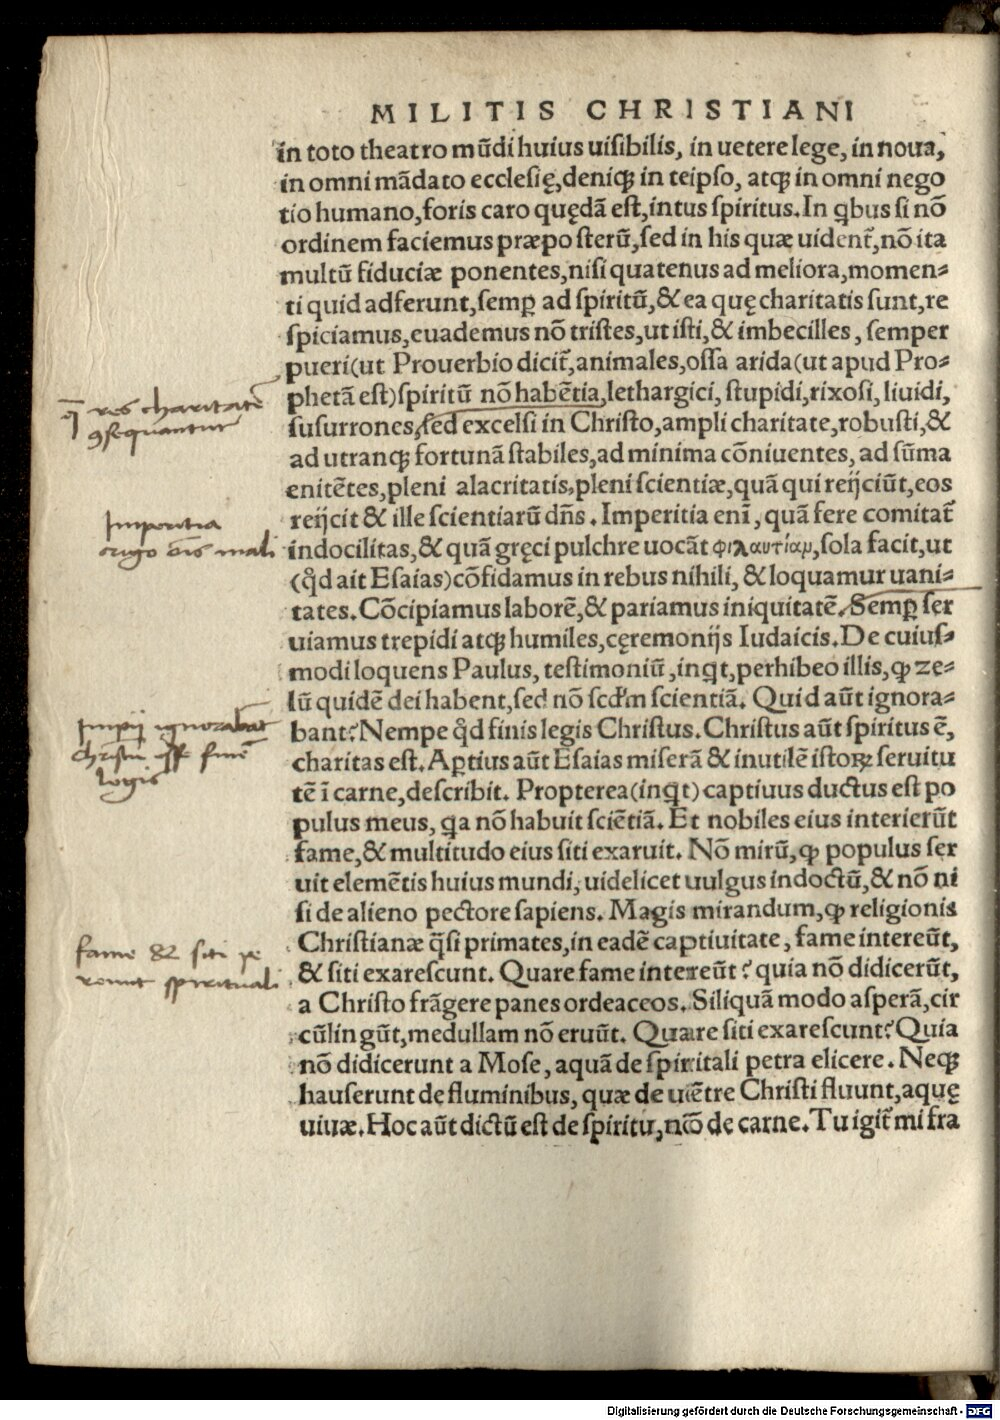 MILITIS CHRISTIANI
in toto theatro mũdi huius uisibilis, in uetere lege, in noua,
in omni mãdato ecclesię, deniqꝫ in teipso, atqꝫ in omni nego
tio humano, foris caro quędã est, intus spiritus. In qbus si nõ
ordinem faciemus præposterũ, sed in his quæ uident̃, nõ ita
multũ fiduciæ ponentes, nisi quatenus ad meliora, momen⸗
ti quid adferunt, semꝑ ad spiritũ, & ea quę charitatis sunt, re
spiciamus, euademus nõ tristes, ut isti, & imbecilles, semper
pueri (ut Prouerbio dicit̃, animales, ossa arida (ut apud Pro⸗
phetã est) spiritũ nõ habẽtia, lethargici, stupidi, rixosi, liuidi,
susurrones, sed excelsi in Christo, ampli charitate, robusti, &
ad utranqꝫ fortunã stabiles, ad minima cõniuentes, ad sũma
enitẽtes, pleni alacritatis, pleni scientiæ, quã qui reijciũt, eos
reijcit & ille scientiarũ dñs. Imperitia enĩ, quã fere comitat̃
indocilitas, & quã gręci pulchre uocãt φιλαυτίαμ, sola facit, ut
(qd̃ ait Esaias) cõfidamus in rebus nihili, & loquamur uani⸗
tates. Cõcipiamus laborẽ, & pariamus iniquitatẽ. Semꝑ ser
uiamus trepidi atqꝫ humiles, cęremonijs Iudaicis. De cuius⸗
modi loquens Paulus, testimoniũ, inqt, perhibeo illis, ꝙ ze⸗
lũ quidẽ dei habent, sed nõ scd'm scientiã. Quid aũt ignora⸗
bant? Nempe qd̃ finis legis Christus. Christus aũt spiritus ẽ,
charitas est. Aꝑtius aũt Esaias miserã & inutilẽ istoꝝ seruitu
tẽ ĩ carne, describit. Propterea (inqt) captiuus ductus est po
pulus meus, qa nõ habuit sciẽtiã. Et nobiles eius interierũt
fame, & multitudo eius siti exaruit. Nõ mirũ, ꝙ populus ser
uit elemẽtis huius mundi, uidelicet uulgus indoctũ, & nõ ni
si de alieno pectore sapiens. Magis mirandum, ꝙ religionis
Christianæ q̃si primates, in eadẽ captiuitate, fame intereũt,
& siti exarescunt. Quare fame intereũt? quia nõ didicerũt,
a Christo frãgere panes ordeaceos. Siliquã modo asperã, cir
cũlingũt, medullam nõ eruũt. Quare siti exarescunt? Quia
nõ didicerunt a Mose, aquã de spiritali petra elicere. Neqꝫ
hauserunt de fluminibus, quæ de uẽtre Christi fluunt, aquę
uiuæ. Hoc aũt dictũ est de spiritu, nõ de carne. Tu igit̃ mi fra
res charitatẽ
ꝯsequantur
Imperitia
origo oĩs mali
Impij ignorabãt
Christũ esse finẽ
legis
fame & siti pe
reunt spirituali
Digitalisierung gefördert durch die Deutsche Forschungsgemeinschaft - DFG